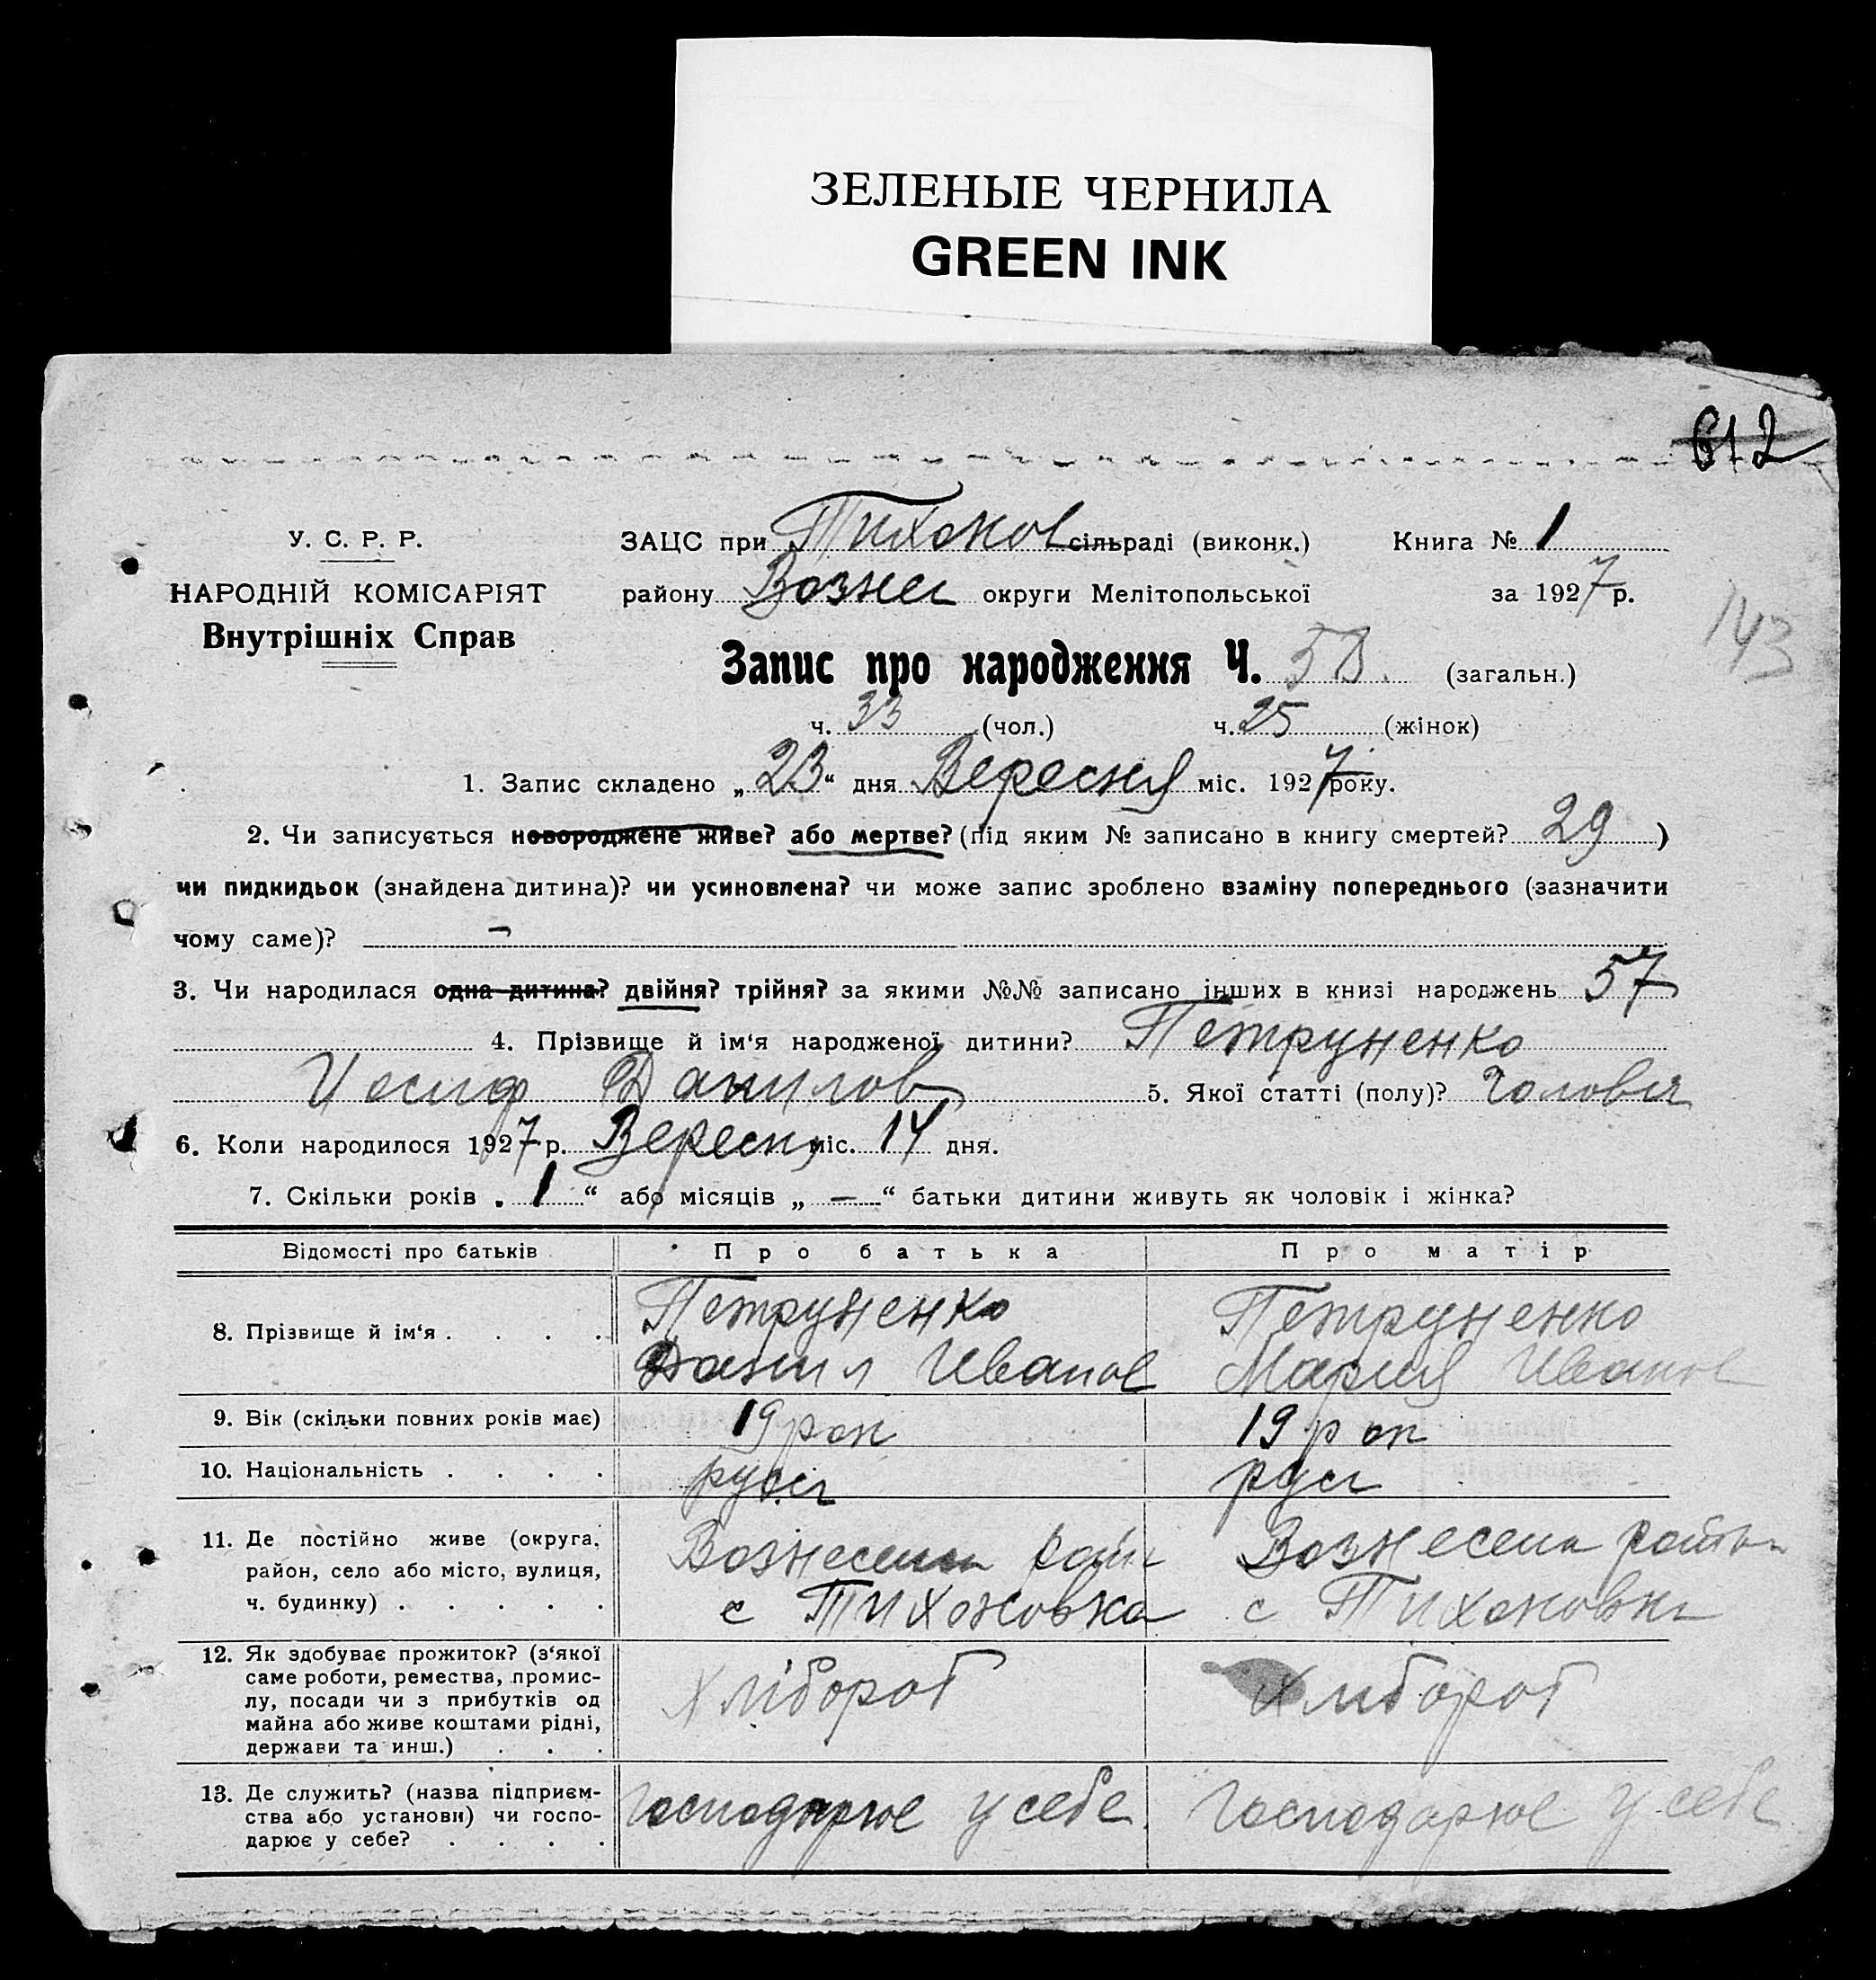 ЗЕЛЕНЫЕ ЧЕРНИЛА
GREEN INK
612
У. С. Р. Р.
НАРОДНІЙ КОМІСАРІЯТ
Внутрішніх Справ
ЗАЦС при Тихонов сільраді (виконк.) Книга № 1
району Вознес округи Мелітопольської за 1927 р.
143
Запис про народження Ч. 58. (загальн.)
ч. 33 (чол.) ч. 25 (жінок)
1. Запис складено „23“ дня Вересня міс. 1927 року.
2. Чи записується новороджене живе? або мертве? (під яким № записано в книгу смертей? 29)
чи пидкидьок (знайдена дитина)? чи усиновлена? чи може запис зроблено взаміну попереднього (зазначити
чому саме)? –
3. Чи народилася одна дитина? двійня? трійня? за якими №№ записано інших в книзі народжень 57
4. Прізвище й ім‘я народженої дитини? Петруненко
Иосиф Данилов 5. Якої статті (полу)? Чоловіч
6. Коли народилося 1927 р. Вересня міс. 14 дня.
7. Скільки років „1“ або місяців „—“ батьки дитини живуть як чоловік і жінка?
Відомості про батьків Про батька Про матір
8. Прізвище й ім‘я . . . . Петруненко Данил Иванов Петруненко Мария Иванов
9. Вік (скільки повних років має) 19 рок 19 рок
10. Національність . . . . русь русь
11. Де постійно живе (округа,
район, село або місто, вулиця,
ч. будинку) . . . . .
Вознесенськ район
с Тихоновка
Вознесенськ район
с Тихоновка
12. Як здобуває прожиток? (з‘якої
саме роботи, ремества, промис-
лу, посади чи з прибутків од
майна або живе коштами рідні,
держави та инш.) . . .
Хлібороб
Хлибороб
13. Де служить? (назва підприєм-
ства або установи) чи госпо-
дарює у себе? . . . .
Господарює у себе
Господарює у себе